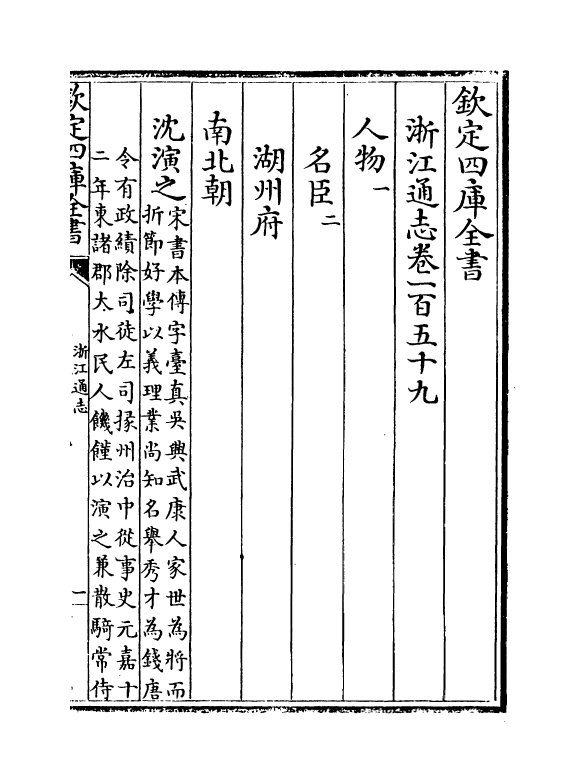 欽定四庫全書
浙江通志卷一百五十九
人物一
名臣二
湖州府
南北朝
沈演之宋書本傳字臺真吳興武康人家世為將而
折節好學以義理業尚知名舉秀才為錢唐
令有政績除司徒左司掾州治中從事史元嘉十
二年東諸郡大水民人饑饉以演之兼散騎常侍
欽定四庫全書
浙江通志